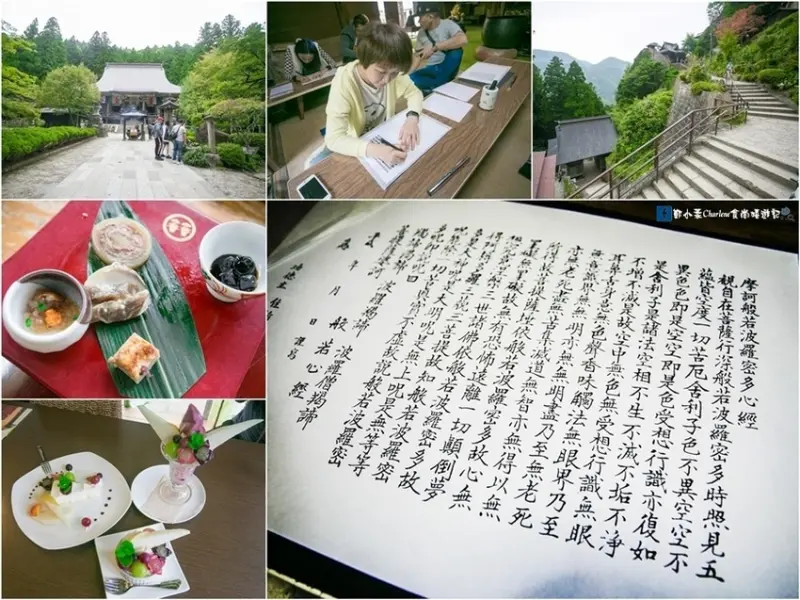 Charlene食尚嬉遊記
摩訶般若波羅蜜多心經
觀自在菩薩行深般若波羅蜜多時照見五
蘊皆空度一切苦厄舍利子色不異空空不
異色色即是空空即是色受想行識亦復如
是舍利子是諸法空相不生不滅不垢不淨
不增不減是故空中無色無受想行識無眼
耳鼻舌身意無色聲香味觸法無眼界乃至
無意識界無無明亦無無明盡乃至無老死
亦無老死盡無苦集滅道無智亦無得以無
所得故菩提薩埵依般若波羅蜜多故心無
罣礙無罣礙故無有恐怖遠離一切顛倒夢
想究竟涅槃三世諸佛依般若波羅蜜多故
得阿耨多羅三藐三菩提故知般若波羅蜜
多是大神呪是大明呪是無上呪是無等等
呪能除一切苦真實不虛故說般若波羅蜜
多呪即說呪曰
羯諦羯諦 波羅羯諦 波羅僧羯諦
菩提薩婆訶 般若心經
為 年 月 日